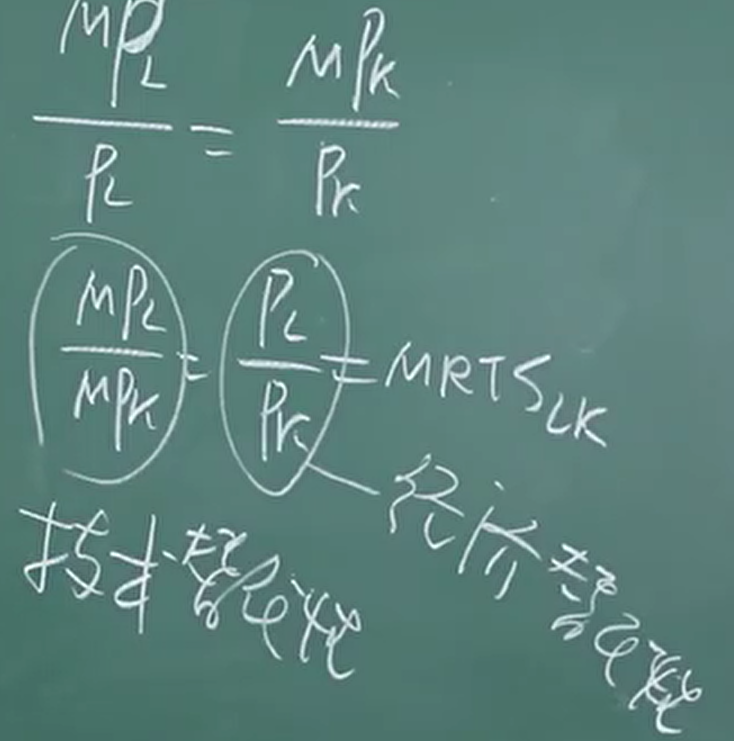 MP_L / P_L = MP_K / P_K
MP_L / MP_K = P_L / P_K = MRTS_LK
技术替代性
经济替代性